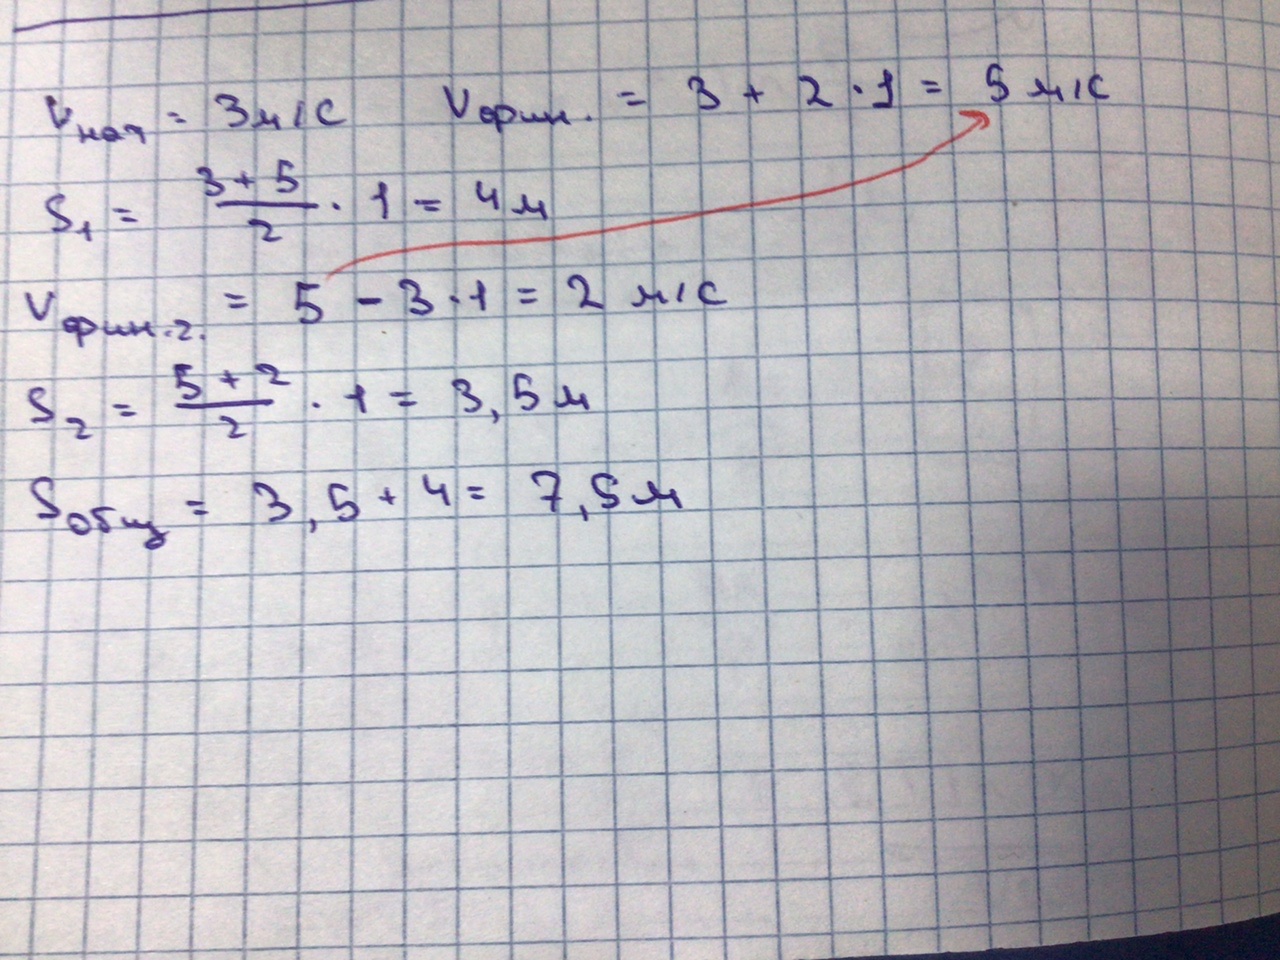 Vнач = 3м/с Vфин. = 3 + 2 · 1 = 5 м/с
S₁ = (3 + 5)/2 · 1 = 4 м
Vфин.2. = 5 - 3 · 1 = 2 м/с
S₂ = (5 + 2)/2 · 1 = 3,5 м
Sобщ = 3,5 + 4 = 7,5 м